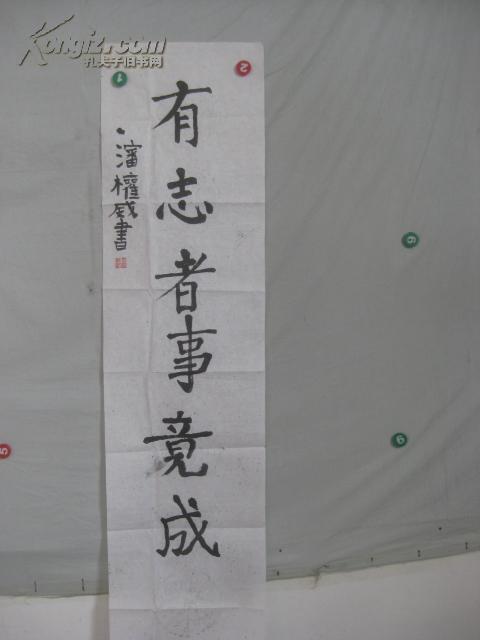 Kongfz.com
孔夫子旧书网
有志者事竟成
潘權威書
1
2
6
9
5